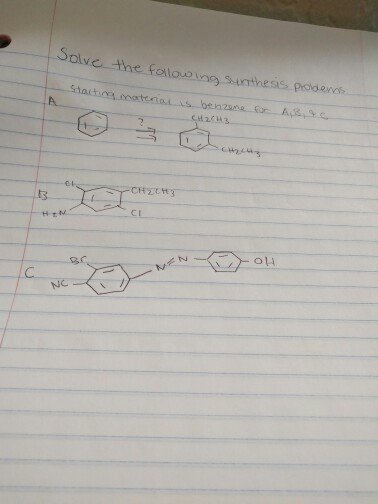 Solve the following synthesis problems
Starting material is benzene for A, B, & C
A
?
CH2CH3
CH2CH3
B
Cl
CH2CH3
H2N
Cl
C
Br
NC
N=N
OH